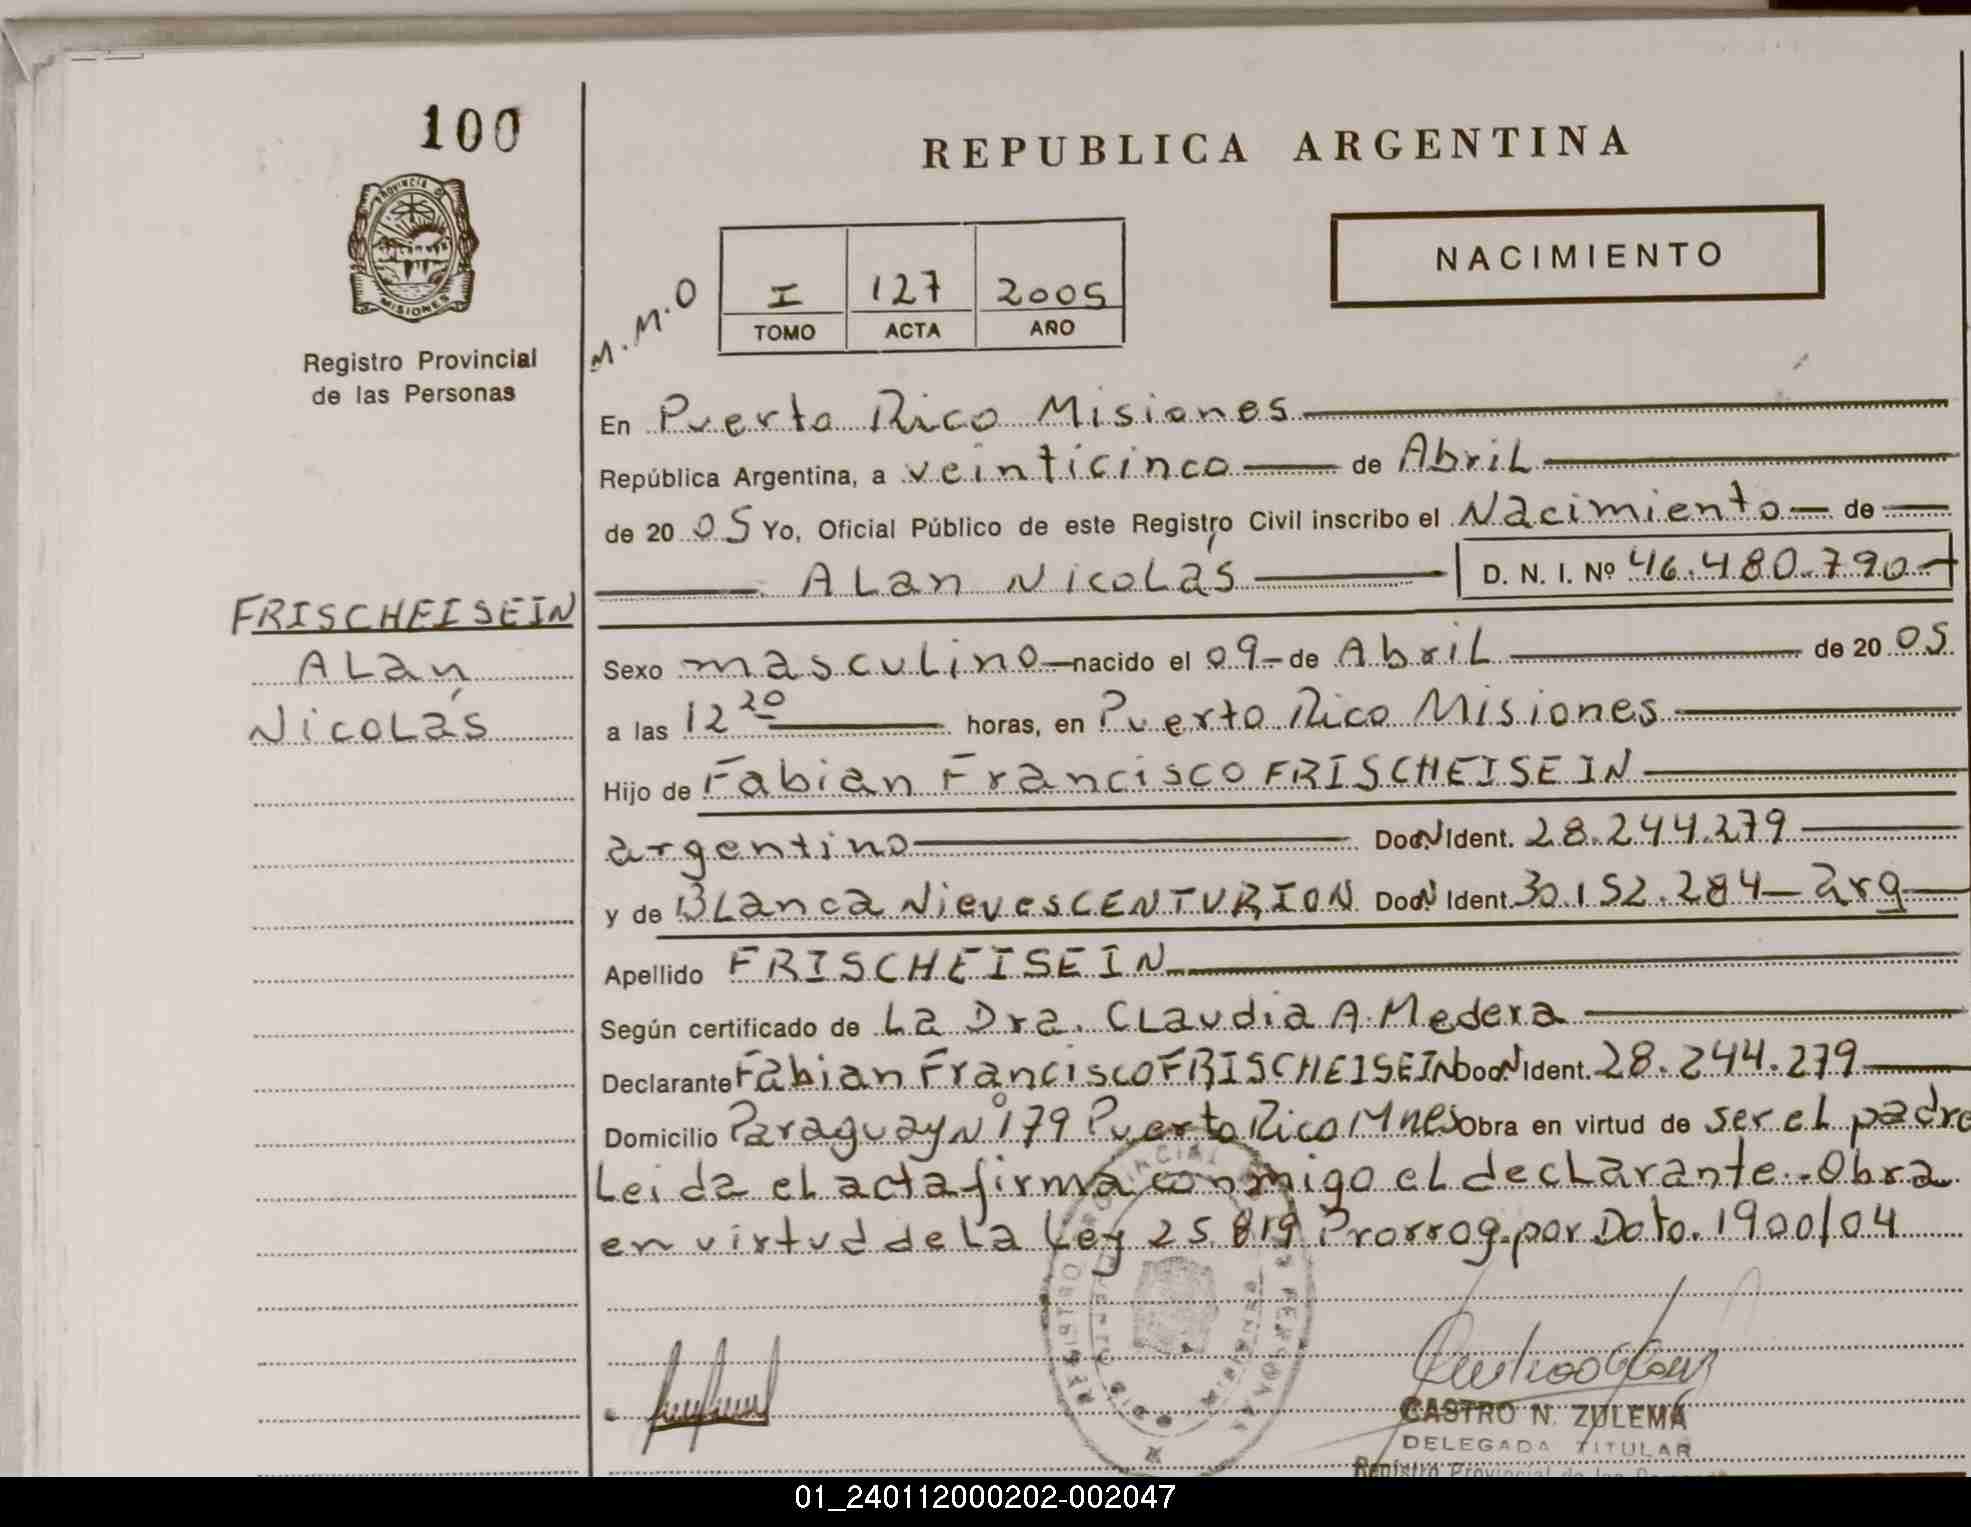 100
REPUBLICA ARGENTINA
NACIMIENTO
PROVINCIA D
MISIONES
Registro Provincial
de las Personas
M.M.O
I 127 2005
TOMO ACTA AÑO
En Puerto Rico Misiones
República Argentina, a veinticinco de Abril
de 20 05 Yo, Oficial Público de este Registro Civil inscribo el Nacimiento de
ALan NicoLás D. N. I. Nº 46.480.790
FRISCHEISEIN
ALan
NicoLás
Sexo masculino nacido el 09 de Abril de 20 05
a las 12 20 horas, en Puerto Rico Misiones
Hijo de Fabian Francisco FRISCHEISEIN
argentino Doc N Ident. 28.244.279
y de BLanca Nieves CENTURION Doc N Ident. 30.152.284 - arg
Apellido FRISCHEISEIN
Según certificado de La Dra. CLaudia A. Medera
Declarante Fabian Francisco FRISCHEISEIN Doc N Ident. 28.244.279
Domicilio Paraguay Nº 179 Puerto Rico Mnes Obra en virtud de ser el padre
Leida el acta firma conmigo el decLarante.-Obra
en virtud de La Ley 25.819 Prorrog. por Dcto. 1900/04
CASTRO N. ZULEMA
DELEGADA TITULAR
Registro Provincial de las Personas
01_240112000202-002047